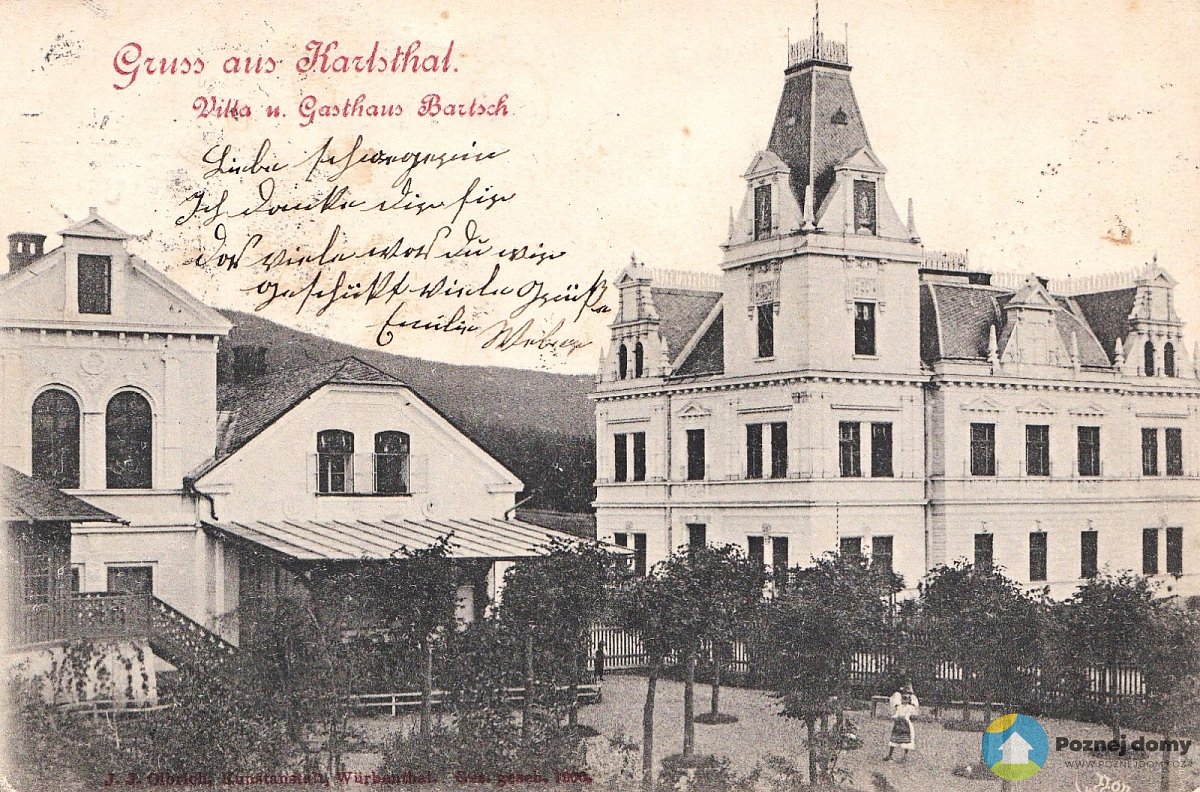 Gruss aus Karlsthal.
Villa u. Gasthaus Bartsch.
Liebe schwegerin
Ich danke dir fir
das viele was Du wir
geschükt viele Grüße
Emilie Weber
J. J. Olbrich, Kunstanstalt, Würbenthal. Ges. gesch.
Poznej domy
WWW.POZNEJDOMY.CZ